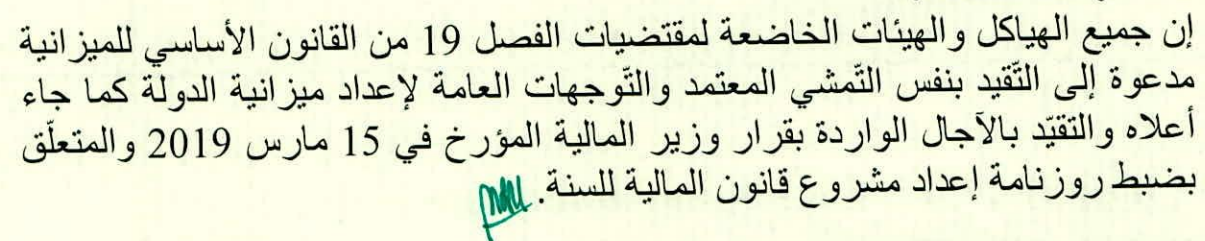 إن جميع الهياكل والهيئات الخاضعة لمقتضيات الفصل 19 من القانون الأساسي للميزانية
مدعوة إلى التّقيد بنفس التّمشي المعتمد والتّوجهات العامة لإعداد ميزانية الدولة كما جاء
أعلاه والتقيّد بالآجال الواردة بقرار وزير المالية المؤرخ في 15 مارس 2019 والمتعلّق
بضبط روزنامة إعداد مشروع قانون المالية للسنة.